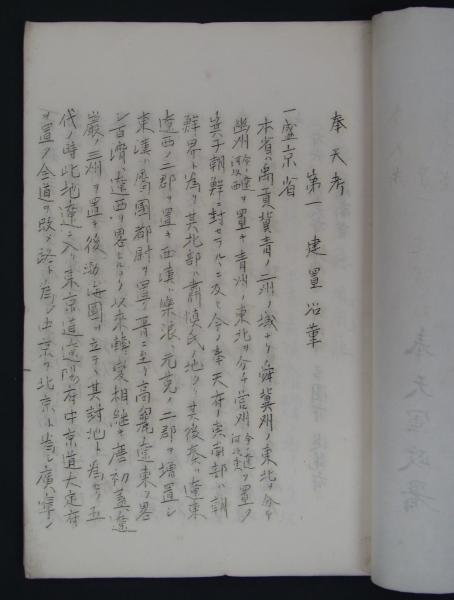 奉天考
第一 建置沿革
一盛京省
本省ハ禹貢冀青ノ二州ノ域ナリ舜冀州ノ東北ヲ分チ
幽州ヲ置キ青州ノ東北ヲ分チ営州ヲ置ク
箕子朝鮮ニ封セラルヽニ及ヒ今ノ奉天府ノ東南部ハ朝
鮮界ト為リ其北部ハ粛慎氏ノ地タリ其後秦ハ遼東
遼西ノ二郡ヲ置キ西漢ハ楽浪元菟ノ二郡ヲ増置シ
東漢ハ属国都尉ヲ置ク晋ニ至リ高麗遼東ヲ畧
シ百済遼西ヲ畧セシヨリ以来転変相継キ唐初蓋遼
巌ノ三州ヲ置キ後渤海国ヲ立テ其封地ト為セリ五
代ノ時此地遼ニ入リ東京道遼陽府中京道大定府
ヲ置ク金道ヲ改メ路ト為シ中京ヲ北京ト為シ広寧